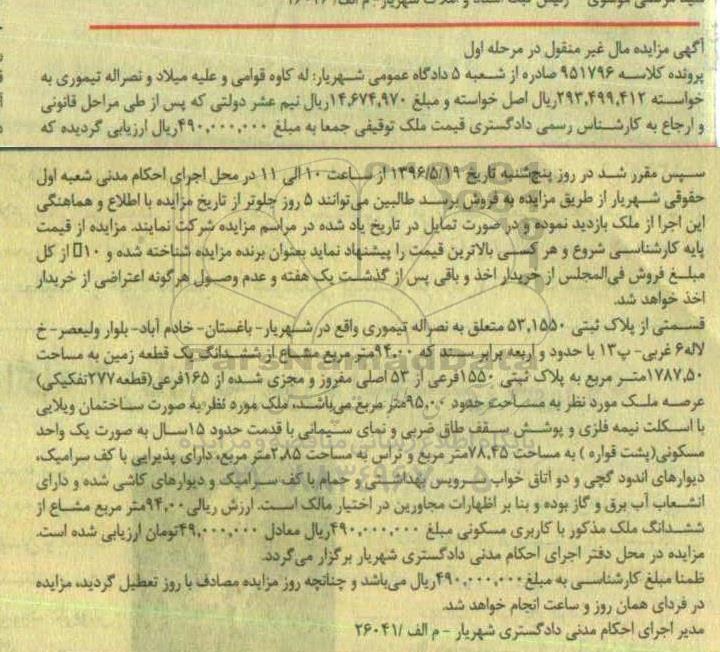 سید مرتضی موسوی - رئیس ثبت اسناد و املاک شهریار - م الف/
آگهی مزایده مال غیر منقول در مرحله اول
پرونده کلاسه ۹۵۱۷۹۶ صادره از شعبه ۵ دادگاه عمومی شهریار: له کاوه قوامی و علیه میلاد و نصراله تیموری به
خواسته ۲۹۳,۴۹۹,۴۱۲ریال اصل خواسته و مبلغ ۱۴,۶۷۴,۹۷۰ریال نیم عشر دولتی که پس از طی مراحل قانونی
و ارجاع به کارشناس رسمی دادگستری قیمت ملک توقیفی جمعا به مبلغ ۴۹۰,۰۰۰,۰۰۰ریال ارزیابی گردیده که
سپس مقرر شد در روز پنج‌شنبه تاریخ ۱۳۹۶/۵/۱۹ از ساعت ۱۰ الی ۱۱ در محل اجرای احکام مدنی شعبه اول
حقوقی شهریار از طریق مزایده به فروش برسد طالبین می‌توانند ۵ روز جلوتر از تاریخ مزایده با اطلاع و هماهنگی
این اجرا از ملک بازدید نموده و در صورت تمایل در تاریخ یاد شده در مراسم مزایده شرکت نمایند. مزایده از قیمت
پایه کارشناسی شروع و هر کسی بالاترین قیمت را پیشنهاد نماید بعنوان برنده مزایده شناخته شده و ۱۰□ از کل
مبلغ فروش فی‌المجلس از خریدار اخذ و باقی پس از گذشت یک هفته و عدم وصول هرگونه اعتراضی از خریدار
اخذ خواهد شد.
قسمتی از پلاک ثبتی ۵۳,۱۵۵۰ متعلق به نصراله تیموری واقع در شهریار- باغستان- خادم آباد- بلوار ولیعصر- خ
لاله۶ غربی- پ۱۳ با حدود و اربعه برابر سند که ۹۴,۰۰متر مربع مشاع از ششدانگ یک قطعه زمین به مساحت
۱۷۸۷,۵۰متر مربع به پلاک ثبتی ۱۵۵۰فرعی از ۵۳ اصلی مفروز و مجزی شده از ۱۶۵فرعی(قطعه۲۷۷تفکیکی)
عرصه ملک مورد نظر به مساحت حدود ۹۵,۰۰متر مربع می‌باشد، ملک مورد نظر به صورت ساختمان ویلایی
با اسکلت نیمه فلزی و پوشش سقف طاق ضربی و نمای سیمانی با قدمت حدود ۱۵سال به صورت یک واحد
مسکونی(پشت قواره ) به مساحت ۷۸,۴۵متر مربع و تراس به مساحت ۲,۸۵متر مربع، دارای پذیرایی با کف سرامیک،
دیوارهای اندود گچی و دو اتاق خواب سرویس بهداشتی و حمام با کف سرامیک و دیوارهای کاشی شده و دارای
انشعاب آب برق و گاز بوده و بنا بر اظهارات مجاورین در اختیار مالک است. ارزش ریالی۹۴,۰۰متر مربع مشاع از
ششدانگ ملک مذکور با کاربری مسکونی مبلغ ۴۹۰,۰۰۰,۰۰۰ریال معادل ۴۹,۰۰۰,۰۰۰تومان ارزیابی شده است.
مزایده در محل دفتر اجرای احکام مدنی دادگستری شهریار برگزار می‌گردد.
ظمنا مبلغ کارشناسی به مبلغ۴۹۰,۰۰۰,۰۰۰ریال می‌باشد و چنانچه روز مزایده مصادف با روز تعطیل گردید، مزایده
در فردای همان روز و ساعت انجام خواهد شد.
مدیر اجرای احکام مدنی دادگستری شهریار - م الف /۲۶۰۴۱